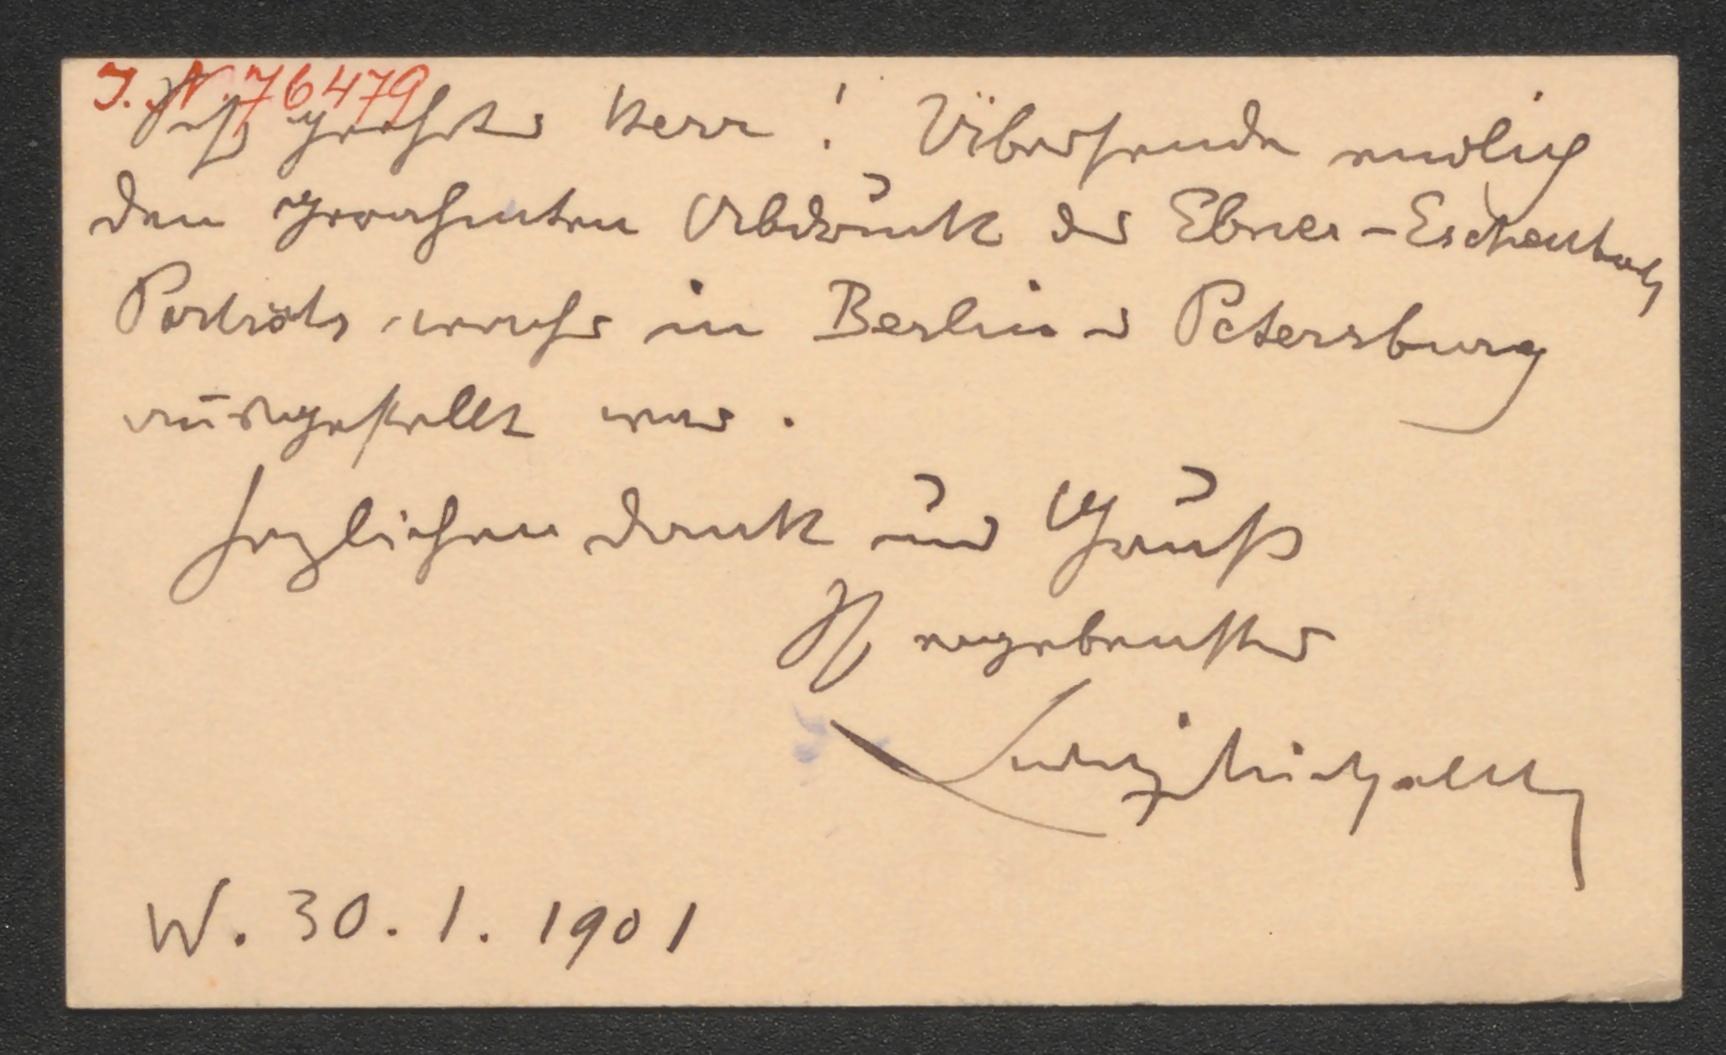 J. N. 76479
Sehr geehrter Herr! Übersende endlich
den gerahmten Abdruck des Ebner-Eschenbach
Porträts, welches in Berlin u Petersburg
ausgestellt war.
Herzlichen Dank und Gruß
Ihr ergebenster
Ludwig Michalek
W. 30. 1. 1901